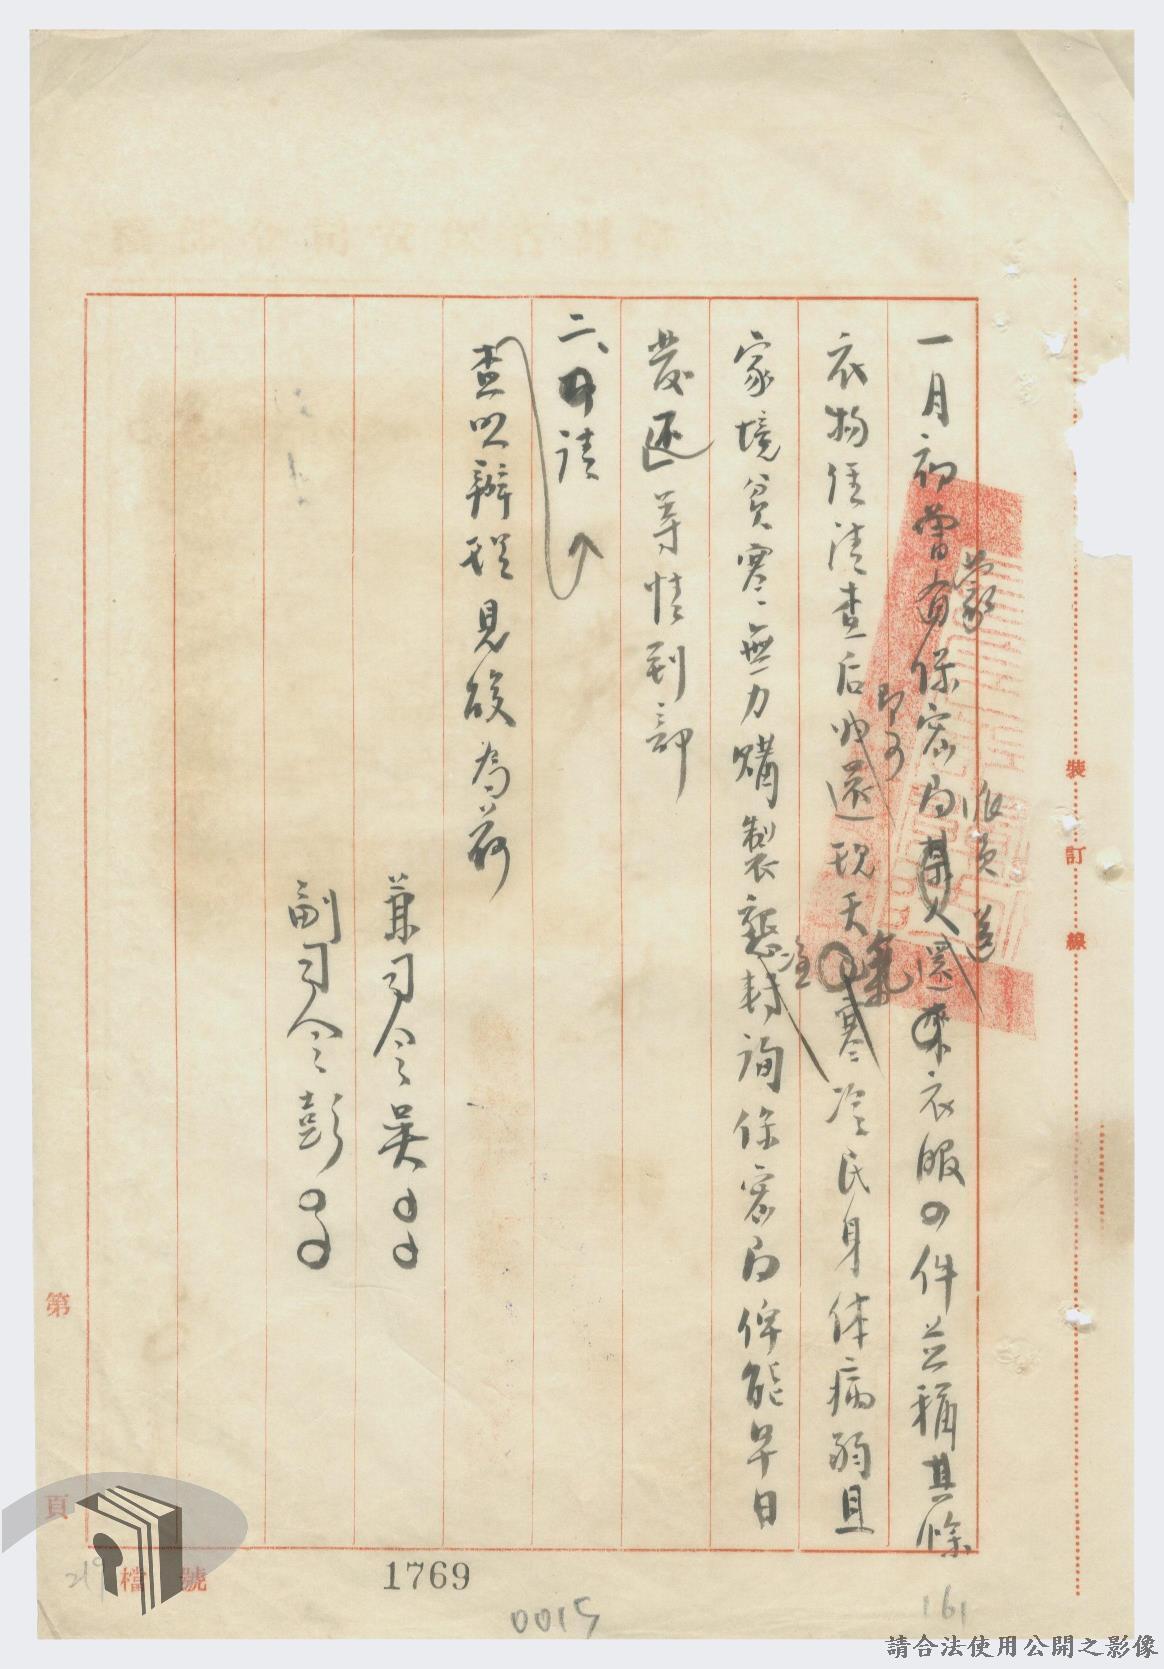 一月初曾蒙保密局派員送還衣服四件並稱其餘
衣物俟清查后即可歸還現天氣寒冷民身体病弱且
家境貧寒無力購製懇轉洽詢保密局俾能早日
發还等情到部
二、請
查照辦理見復為荷
兼司令吳
副司令彭
裝訂線
第
頁
檔號
1769
0015
161
219
請合法使用公開之影像